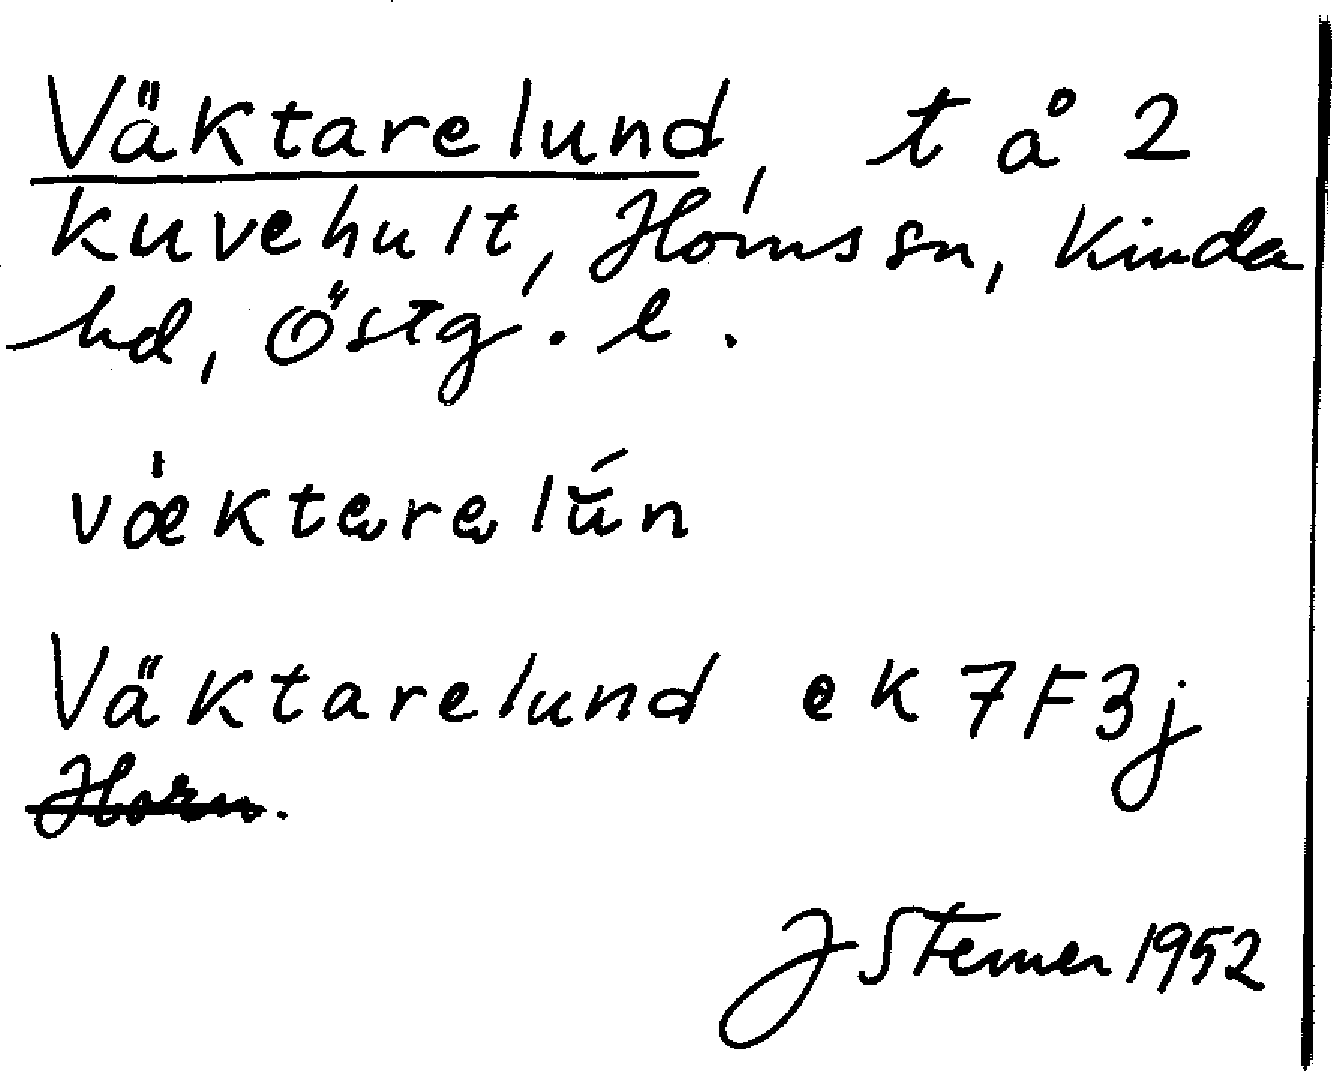 Väktarelund, t å 2
Kuvehult, Horns sn, Kinda
hd, Östg. l.
væ̇ktarąlŭ́n
Väktarelund ek 7F3j
Horn.
J Sterner 1952